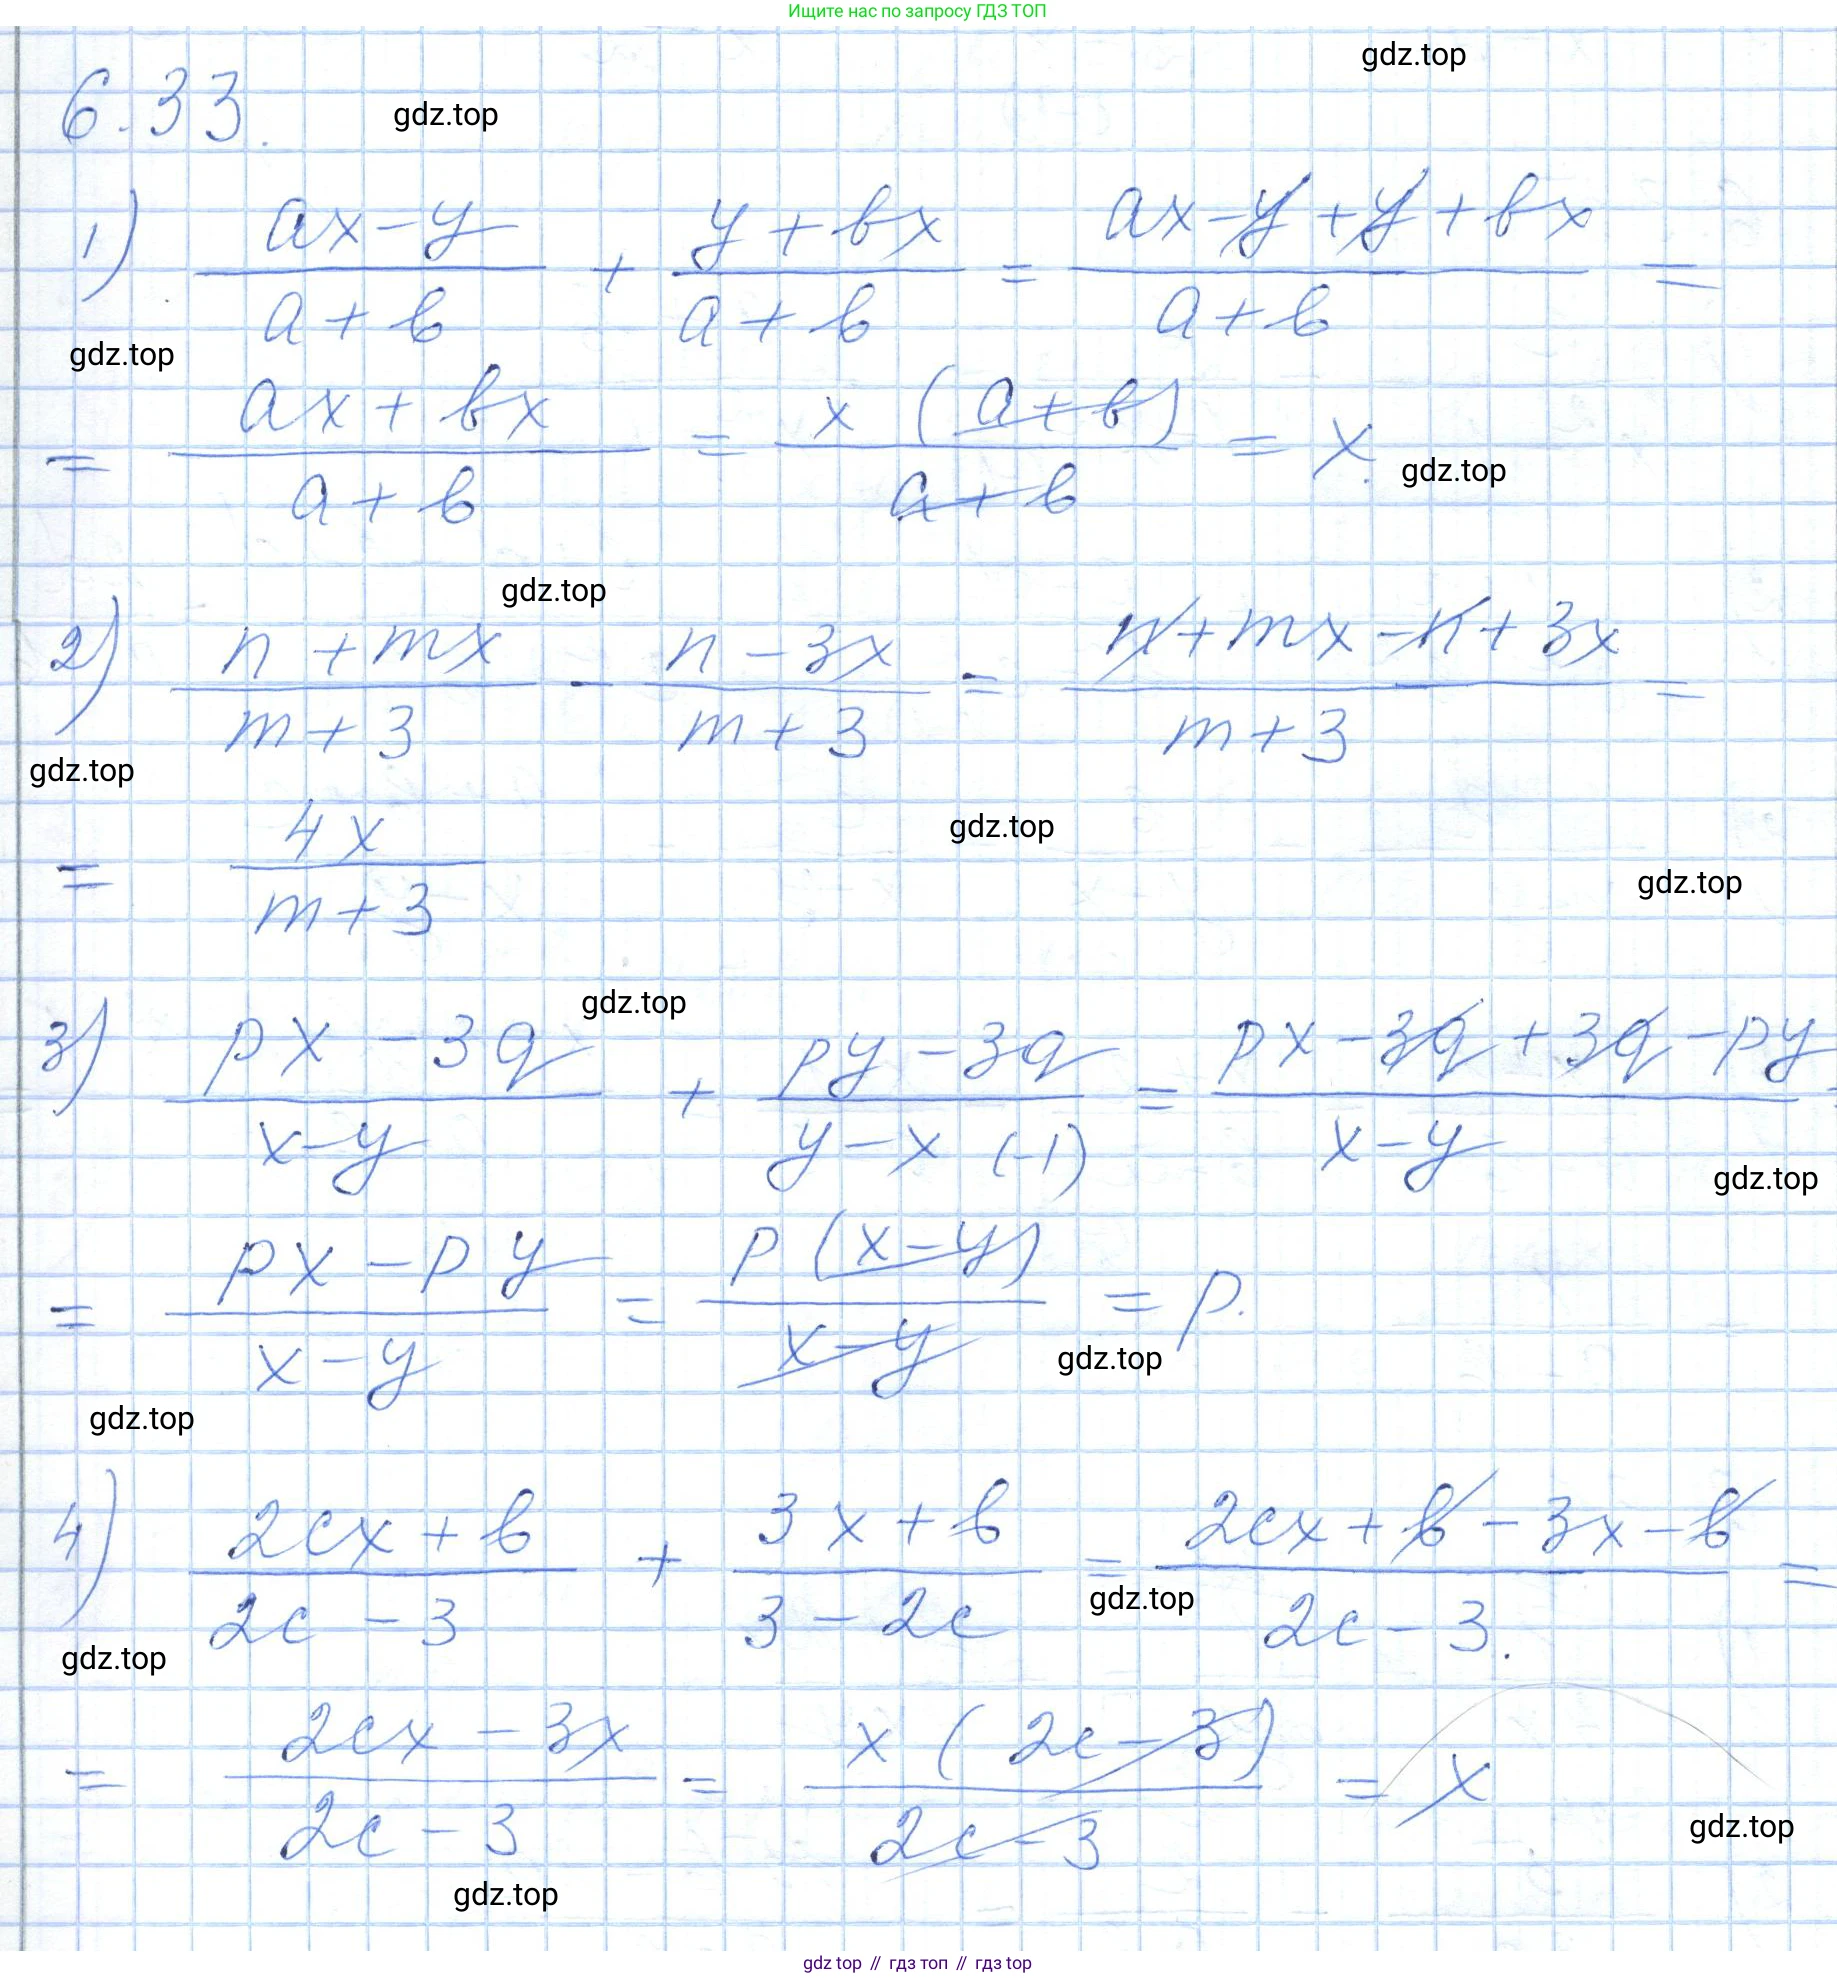 Ищите нас по запросу ГДЗ ТОП
gdz.top
6.33.
gdz.top
1) (ax-y)/(a+b) + (y+bx)/(a+b) = (ax-y+y+bx)/(a+b) =
gdz.top
= (ax+bx)/(a+b) = x(a+b)/(a+b) = x.
gdz.top
gdz.top
2) (n+mx)/(m+3) - (n-3x)/(m+3) = (n+mx-n+3x)/(m+3) =
gdz.top
= 4x/(m+3)
gdz.top
gdz.top
gdz.top
3) (px-3q)/(x-y) + (py-3q)/(y-x (-1)) = (px-3q+3q-py)/(x-y) =
gdz.top
= (px-py)/(x-y) = p(x-y)/(x-y) = p.
gdz.top
gdz.top
4) (2cx+b)/(2c-3) + (3x+b)/(3-2c) = (2cx+b-3x-b)/(2c-3). =
gdz.top
gdz.top
= (2cx-3x)/(2c-3) = x(2c-3)/(2c-3) = x
gdz.top
gdz.top
gdz top // гдз топ // гдз top